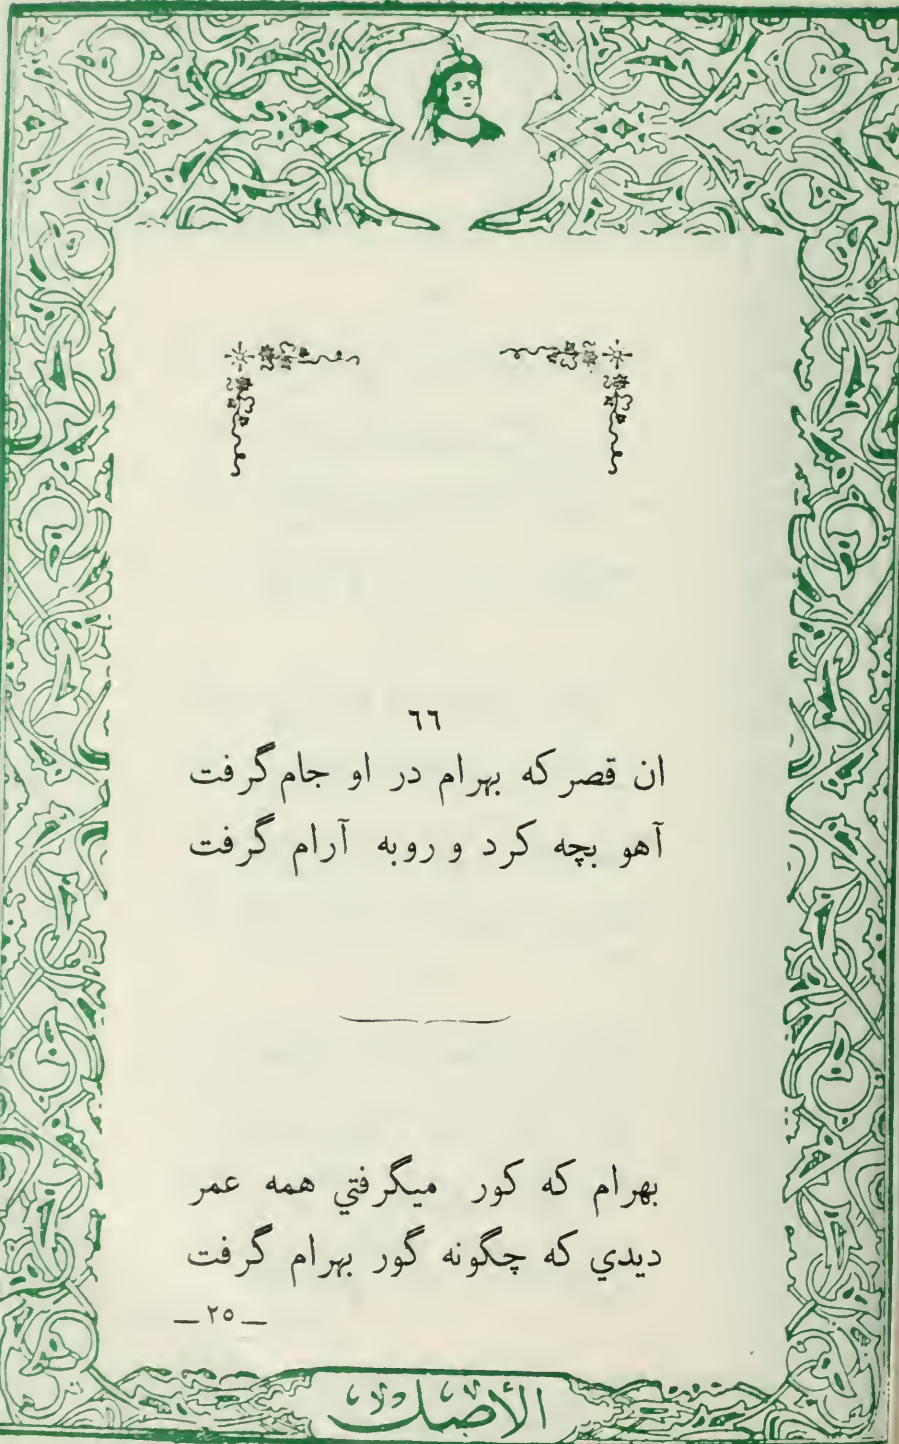 ٦٦
ان قصر که بهرام در او جام گرفت
آهو بچه کرد و روبه آرام گرفت
بهرام که کور میگرفتي همه عمر
ديدي که چگونه گور بهرام گرفت
— ٢٥ —
الأصل